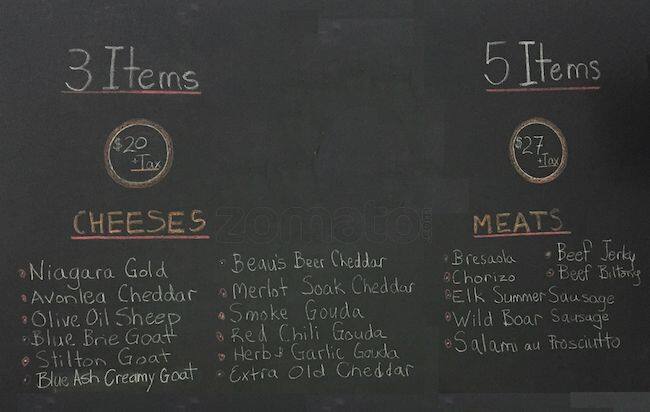 3 Items
$20
+Tax
5 Items
$27
+Tax
CHEESES
Niagara Gold
Avonlea Cheddar
Olive Oil Sheep
Blue Brie Goat
Stilton Goat
Blue Ash Creamy Goat
Beau's Beer Cheddar
Merlot Soak Cheddar
Smoke Gouda
Red Chili Gouda
Herb & Garlic Gouda
Extra Old Cheddar
zomato
MEATS
Bresaola
Chorizo
Elk Summer Sausage
Wild Boar Sausage
Salami au Prosciutto
Beef Jerky
Beef Biltong